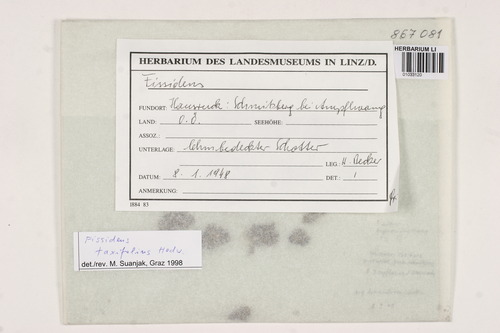 867081
HERBARIUM LI
HERBARIUM DES LANDESMUSEUMS IN LINZ/D.
Fissidens
FUNDORT: Hausruck: Schmitzberg bei Ampflwang
LAND: O.Ö. SEEHÖHE:
ASSOZ.:
UNTERLAGE: lehmbedeckter Schotter
LEG.: H. Becker
DATUM: 8. 1. 1948 DET.:
ANMERKUNG:
I884 83
Fissidens
taxifolius Hedw.
det./rev. M. Suanjak, Graz 1998